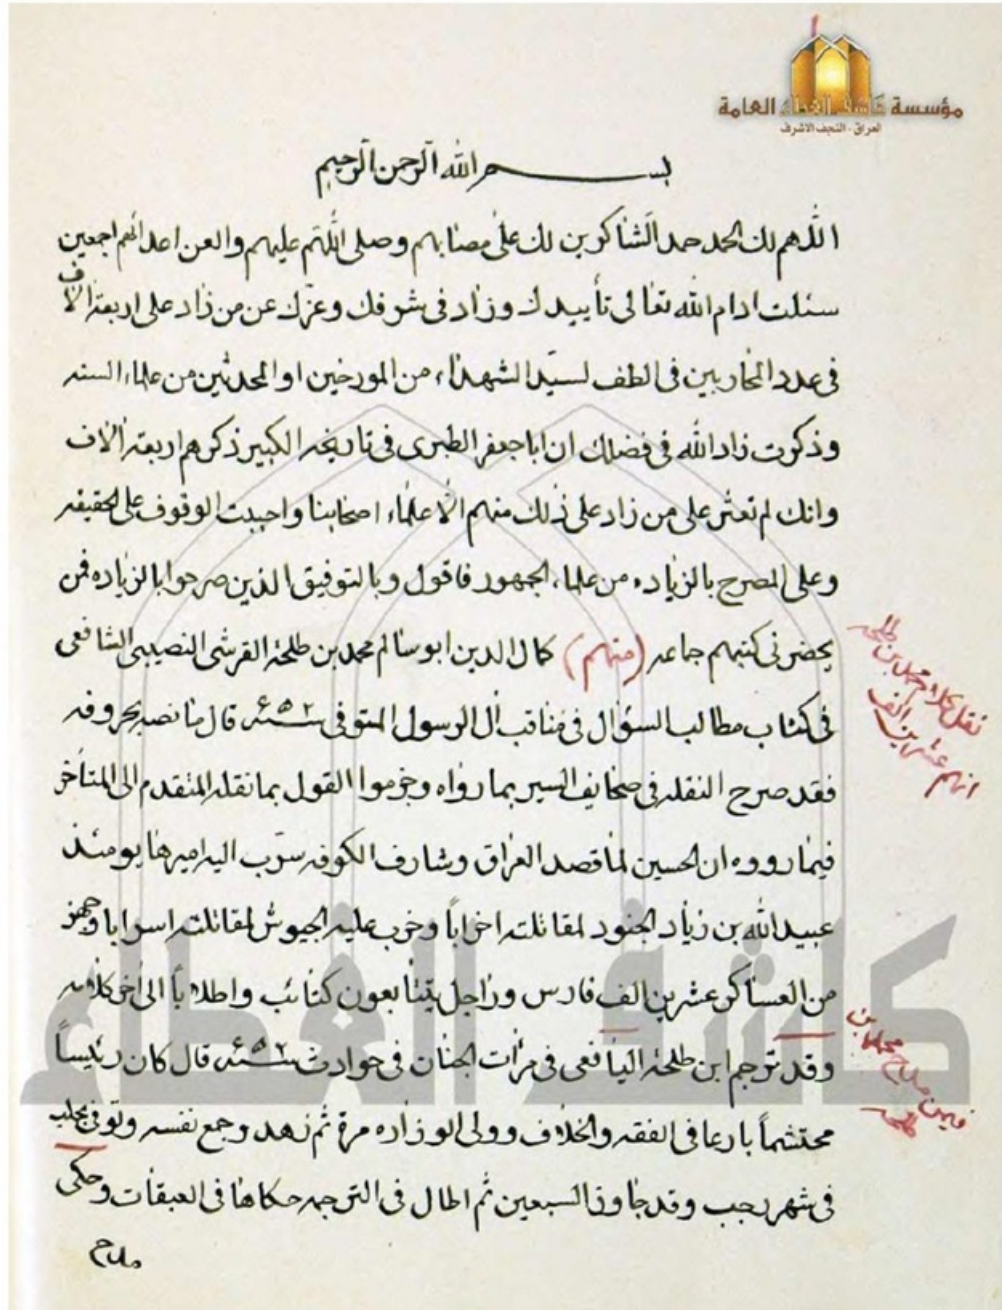 مؤسسة كاشف الغطاء العامة
العراق - النجف الاشرف
بسم الله الرحمن الرحيم
اللهم لك الحمد حمد الشاكرين لك على مصابهم وصلى اللهم عليهم والعن اعدائهم اجمعين
سئلت ادام الله تعالى تأييدك وزاد في شرفك وعزك عن من زاد على اربعة الاف
في عدد المحاربين في الطف لسيد الشهداء من المورخين او المحدثين من علماء السنه
وذكرت زاد الله في فضلك ان ابا جعفر الطبرى في تاريخه الكبير ذكرهم اربعة الاف
وانك لم تعثر على من زاد على ذلك منهم الا علماء اصحابنا واحببت الوقوف على الحقيقه
وعلى المصرح بالزياده من علماء الجمهور فاقول وبالتوفيق الذين صرحوا بالزياده فمن
يحضرنى كتبهم جماعه (منهم) كمال الدين ابو سالم محمد بن طلحة القرشى النصيبى الشافعى
في كتاب مطالب السؤال في مناقب ال الرسول المتوفى سنه ٦٥٢ قال ما نصه بحروفه
فقد صرح النقله في صحايف السير بما رواه وجزموا القول بما نقله المتقدم الى المتأخر
فيما رووه ان الحسين لما قصد العراق وشارف الكوفه سرب اليه اميرها يومئذ
عبيد الله بن زياد الجنود لمقاتلته احزاباً وحزب عليه الجيوش لمقاتلته اسرابا وجهز
من العساكر عشرين الف فارس وراجل يتتابعون كتائب واطلاباً الى اخر كلامه
وقد ترجم ابن طلحة اليافعى في مرات الجنان في حوادث سنه ٦٥٢ قال كان رئيساً
محتشماً بارعا في الفقه والخلاف وولى الوزاره مرة ثم زهد وجمع نفسه وتوفى بحلب
في شهر رجب وقد جاوز السبعين ثم اطال في الترجمه حكاها في العبقات وحكى
مدح
نقل كلام محمد بن طلحه
انهم عشرين الف
فيمن مدح محمد بن
طلحه
كاشف الغطاء